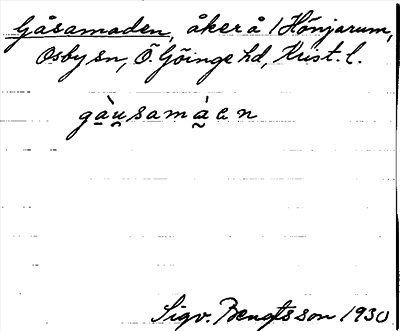 Gåsamaden, åker å 1 Hönjarum,
Osby sn, Ö. Göinge hd, Krist. l.
gàu̯samàen
Sigv. Bengtsson 1930